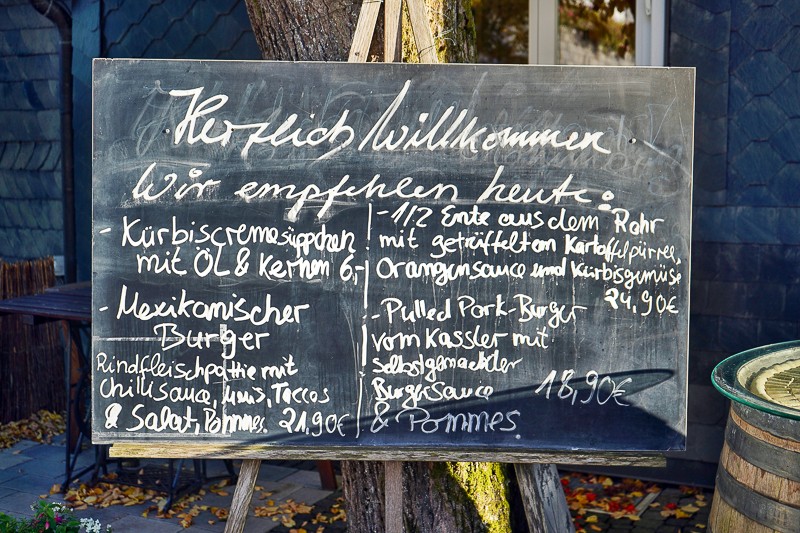 Herzlich Willkommen
Wir empfehlen heute:
- Kürbiscremesüppchen
mit ÖL & Kernen 6,-
- Mexikanischer
Burger
Rindfleischpattie mit
Chillisauce, Mais, Taccos
& Salat, Pommes. 21,90€
- 1/2 Ente aus dem Rohr
mit getrüffeltem Kartoffelpürree,
Orangensauce und Kürbisgemüse
24,90€
- Pulled Pork-Burger
vom Kassler mit
selbstgemachter
Burgersauce 18,90€
& Pommes.